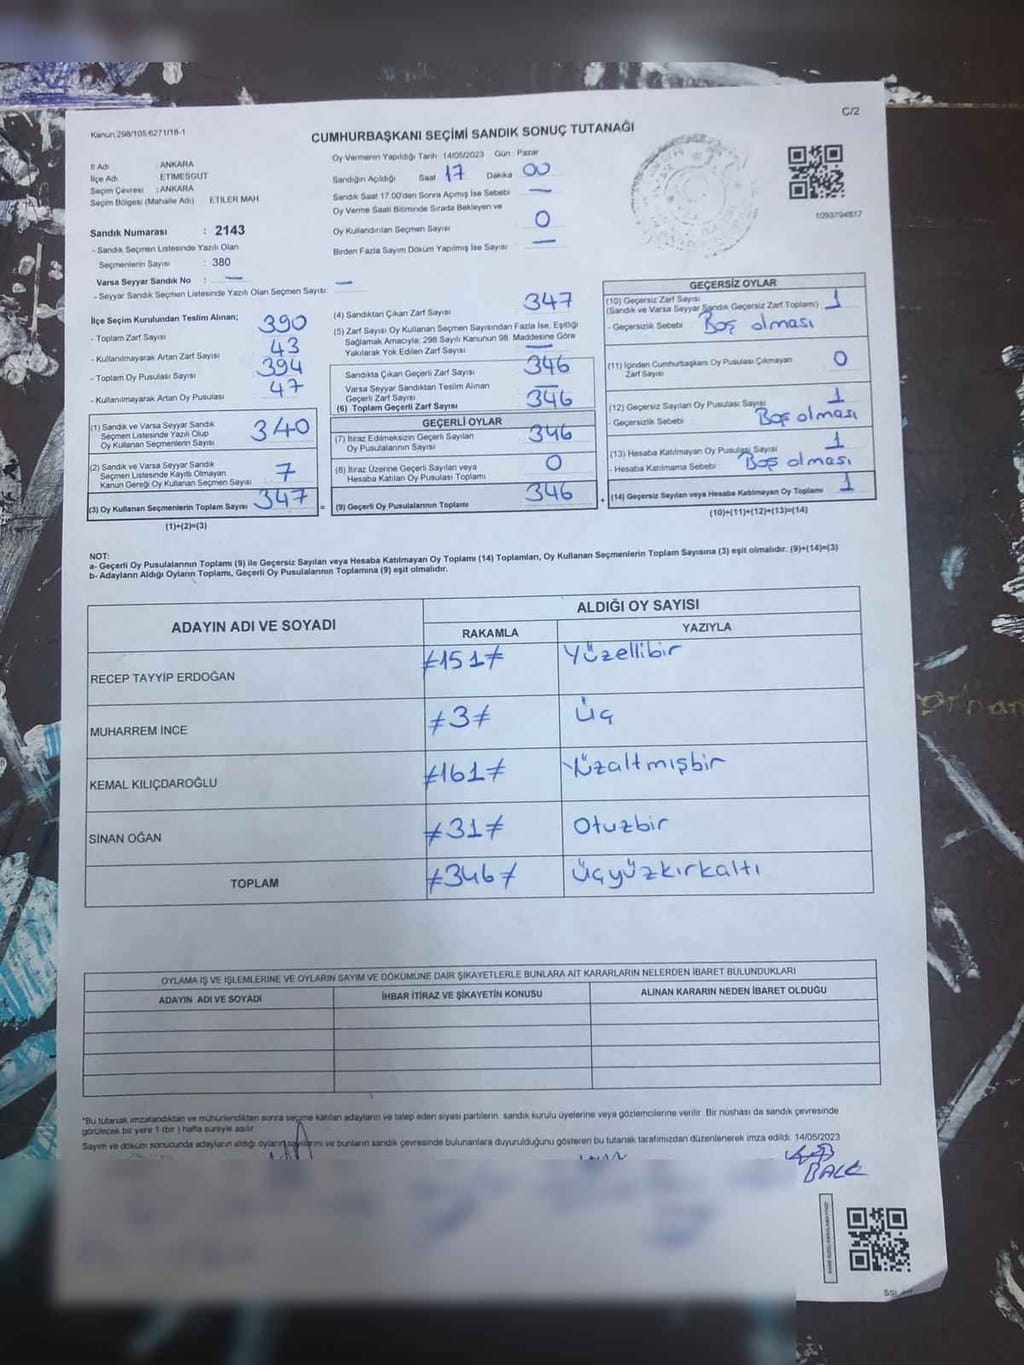 Kanun:298/105.6271/18-1
C/2
CUMHURBAŞKANI SEÇİMİ SANDIK SONUÇ TUTANAĞI
İl Adı : ANKARA
İlçe Adı : ETİMESGUT
Seçim Çevresi : ANKARA
Seçim Bölgesi (Mahalle Adı) ETİLER MAH
Sandık Numarası : 2143
- Sandık Seçmen Listesinde Yazılı Olan
Seçmenlerin Sayısı : 380
Varsa Seyyar Sandık No : —
- Seyyar Sandık Seçmen Listesinde Yazılı Olan Seçmen Sayısı: —
Oy Vermenin Yapıldığı Tarih 14/05/2023 Gün : Pazar
Sandığın Açıldığı Saat 17 Dakika 00
Sandık Saat 17.00'den Sonra Açmış İse Sebebi —
Oy Verme Saati Bitiminde Sırada Bekleyen ve
Oy Kullandırılan Seçmen Sayısı 0
Birden Fazla Sayım Döküm Yapılmış İse Sayısı —
1093794817
İlçe Seçim Kurulundan Teslim Alınan;
- Toplam Zarf Sayısı 390
- Kullanılmayarak Artan Zarf Sayısı 43
- Toplam Oy Pusulası Sayısı 394
- Kullanılmayarak Artan Oy Pusulası 47
(1) Sandık ve Varsa Seyyar Sandık
Seçmen Listesinde Yazılı Olup
Oy Kullanan Seçmenlerin Sayısı 340
(2) Sandık ve Varsa Seyyar Sandık
Seçmen Listesinde Kayıtlı Olmayan
Kanun Gereği Oy Kullanan Seçmen Sayısı 7
(3) Oy Kullanan Seçmenlerin Toplam Sayısı 347
(1)+(2)=(3)
(4) Sandıktan Çıkan Zarf Sayısı 347
(5) Zarf Sayısı Oy Kullanan Seçmen Sayısından Fazla İse, Eşitliği
Sağlamak Amacıyla; 298 Sayılı Kanunun 98. Maddesine Göre
Yakılarak Yok Edilen Zarf Sayısı —
Sandıkta Çıkan Geçerli Zarf Sayısı 346
Varsa Seyyar Sandıktan Teslim Alınan
Geçerli Zarf Sayısı —
(6) Toplam Geçerli Zarf Sayısı 346
GEÇERLİ OYLAR
(7) İtiraz Edilmeksizin Geçerli Sayılan
Oy Pusulasının Sayısı 346
(8) İtiraz Üzerine Geçerli Sayılan veya
Hesaba Katılan Oy Pusulası Toplamı 0
= (9) Geçerli Oy Pusulalarının Toplamı 346
GEÇERSİZ OYLAR
(10) Geçersiz Zarf Sayısı
(Sandık ve Varsa Seyyar Sandık Geçersiz Zarf Toplamı) 1
- Geçersizlik Sebebi Boş olması
(11) İçinden Cumhurbaşkanı Oy Pusulası Çıkmayan
Zarf Sayısı 0
(12) Geçersiz Sayılan Oy Pusulası Sayısı 1
- Geçersizlik Sebebi Boş olması
(13) Hesaba Katılmayan Oy Pusulası Sayısı 1
- Hesaba Katılmama Sebebi Boş olması
+ (14) Geçersiz Sayılan veya Hesaba Katılmayan Oy Toplamı 1
(10)+(11)+(12)+(13)=(14)
NOT:
a- Geçerli Oy Pusulalarının Toplamı (9) ile Geçersiz Sayılan veya Hesaba Katılmayan Oy Toplamı (14) Toplamları, Oy Kullanan Seçmenlerin Toplam Sayısına (3) eşit olmalıdır. (9)+(14)=(3)
b- Adayların Aldığı Oyların Toplamı, Geçerli Oy Pusulalarının Toplamına (9) eşit olmalıdır.
ADAYIN ADI VE SOYADI
ALDIĞI OY SAYISI
RAKAMLA YAZIYLA
RECEP TAYYİP ERDOĞAN ≠151≠ Yüzellibir
MUHARREM İNCE ≠3≠ Üç
KEMAL KILIÇDAROĞLU ≠161≠ Yüzaltmışbir
SİNAN OĞAN ≠31≠ Otuzbir
TOPLAM ≠346≠ Üçyüzkırkaltı
OYLAMA İŞ VE İŞLEMLERİNE VE OYLARIN SAYIM VE DÖKÜMÜNE DAİR ŞİKAYETLERLE BUNLARA AİT KARARLARIN NELERDEN İBARET BULUNDUKLARI
ADAYIN ADI VE SOYADI İHBAR İTİRAZ VE ŞİKAYETİN KONUSU ALINAN KARARIN NEDEN İBARET OLDUĞU
*Bu tutanak imzalandıktan ve mühürlendikten sonra seçime katılan adayların ve talep eden siyasi partilerin sandık kurulu üyelerine veya gözlemcilerine verilir. Bir nüshası da sandık çevresinde
görülecek bir yere 1 (bir) hafta süreyle asılır.
Sayım ve döküm sonucunda adayların aldığı oyların sayılarını ve bunların sandık çevresinde bulunanlara duyurulduğunu gösteren bu tutanak tarafımızdan düzenlenerek imza edildi. 14/05/2023